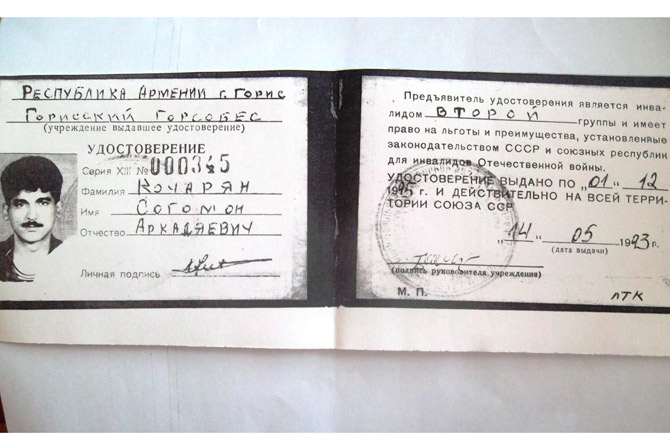 Республика Армении г. Горис
Горисский Горсобес
(учреждение выдавшее удостоверение)
УДОСТОВЕРЕНИЕ
Серия XIII № 000345
Фамилия Кочарян
Имя Согомон
Отчество Аркадяевич
Личная подпись
Предъявитель удостоверения является инва-
лидом ВТОРОЙ группы и имеет
право на льготы и преимущества, установленные
законодательством СССР и союзных республик
для инвалидов Отечественной войны.
УДОСТОВЕРЕНИЕ ВЫДАНО ПО „01" 12
1995 г. И ДЕЙСТВИТЕЛЬНО НА ВСЕЙ ТЕРРИ-
ТОРИИ СОЮЗА ССР
„14" 05 1993 г.
(дата выдачи)
(подпись руководителя учреждения)
М. П.
ЛТК